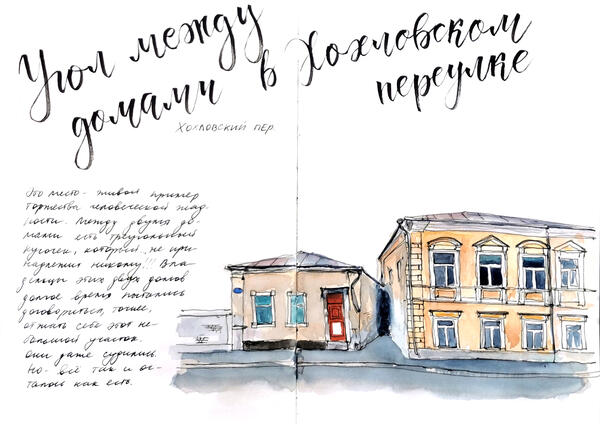 Угол между
домами в Хохловском
переулке
Хохловский пер
Это место - живой пример
торжества человеческой жад-
ности. Между двумя до-
мами есть треугольный
кусочек, который не при-
надлежит никому!!! Вла-
дельцы этих двух домов
долгое время пытались
договориться, точнее,
отжать себе этот не-
большой участок.
Они даже судились.
Но - всё так и ос-
талось как есть.